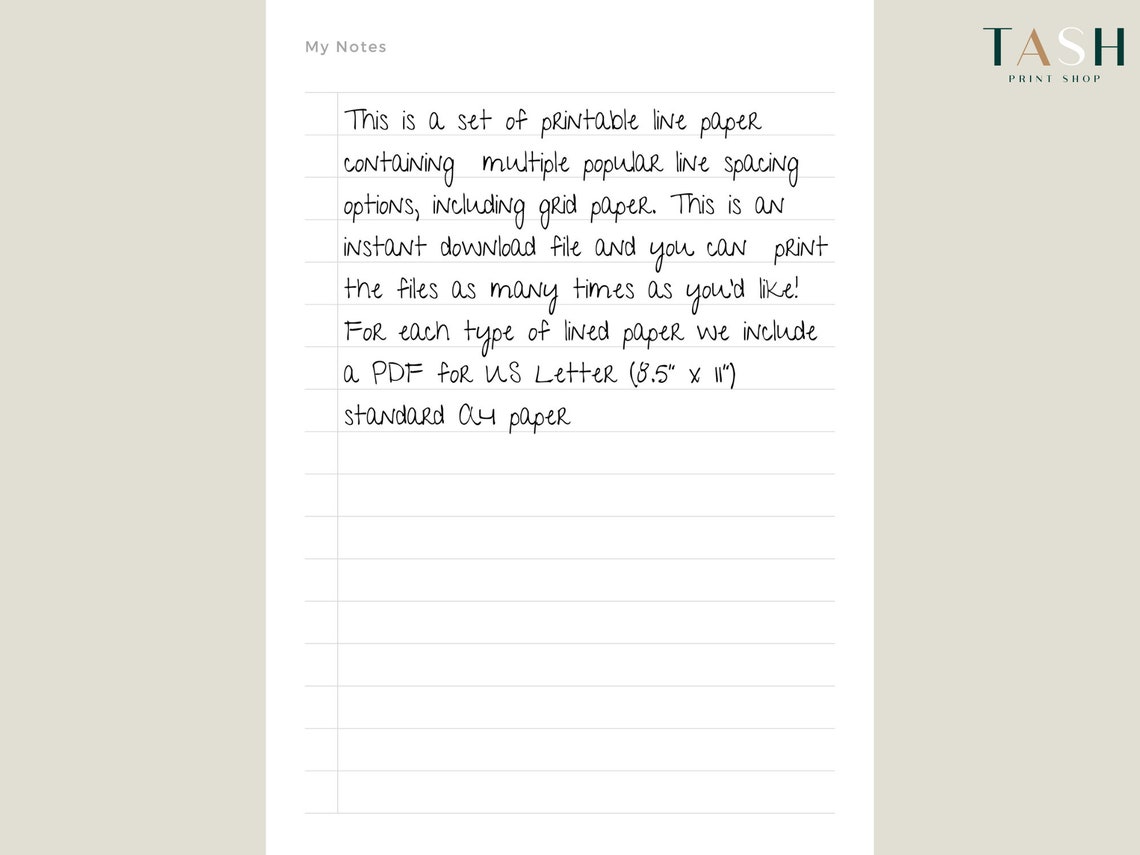 My Notes
TASH
PRINT SHOP
This is a set of printable line paper
containing multiple popular line spacing
options, including grid paper. This is an
instant download file and you can print
the files as many times as you'd like!
For each type of lined paper we include
a PDF for US Letter (8.5" x 11")
standard A4 paper